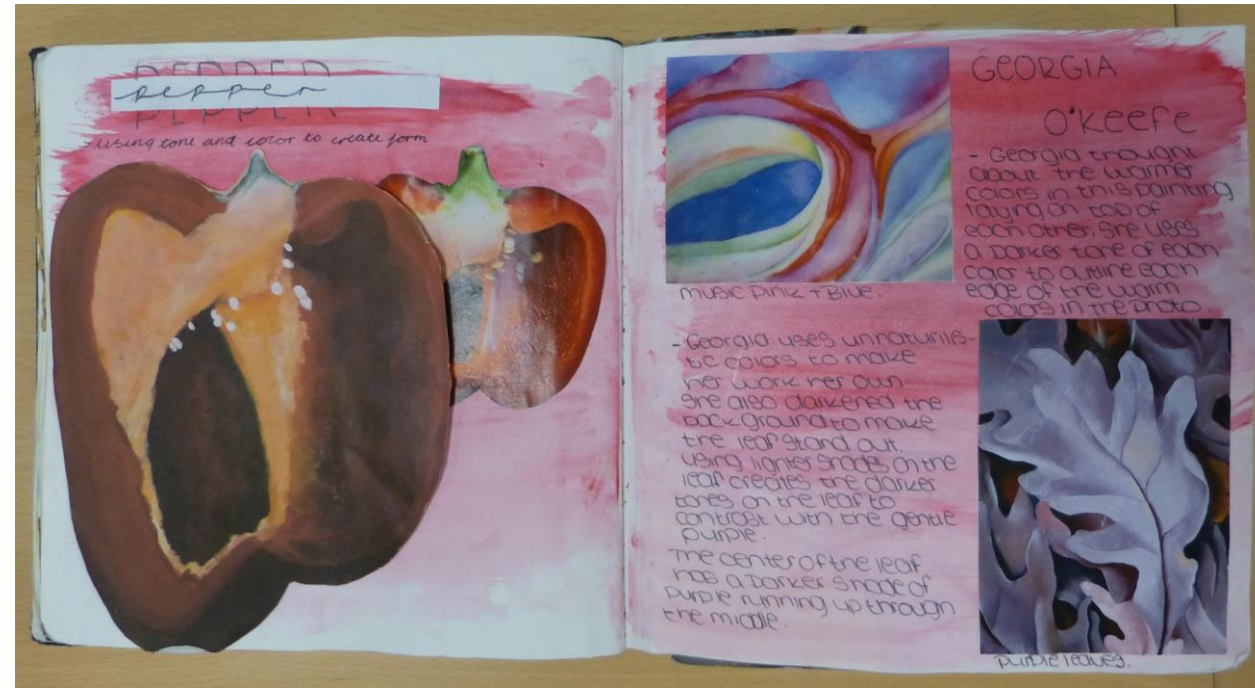 PEPPER
pepper
PEPPER
using tone and color to create form
GEORGIA
O'KEEFE
- Georgia thought
about the warmer
colors in this painting
laying on top of
each other. She uses
a Darker tone of each
color to outline each
edge of the warm
colors in the photo
music pink + Blue.
- Georgia uses unnaturilis-
tic colors to make
her work her own
She also darkened the
background to make
the leaf stand out.
using lighter shades on the
leaf creates the darker
tones on the leaf to
contrast with the gentle
purple.
The center of the leaf
has a Darker shade of
purple running up through
the middle.
purple leaves.